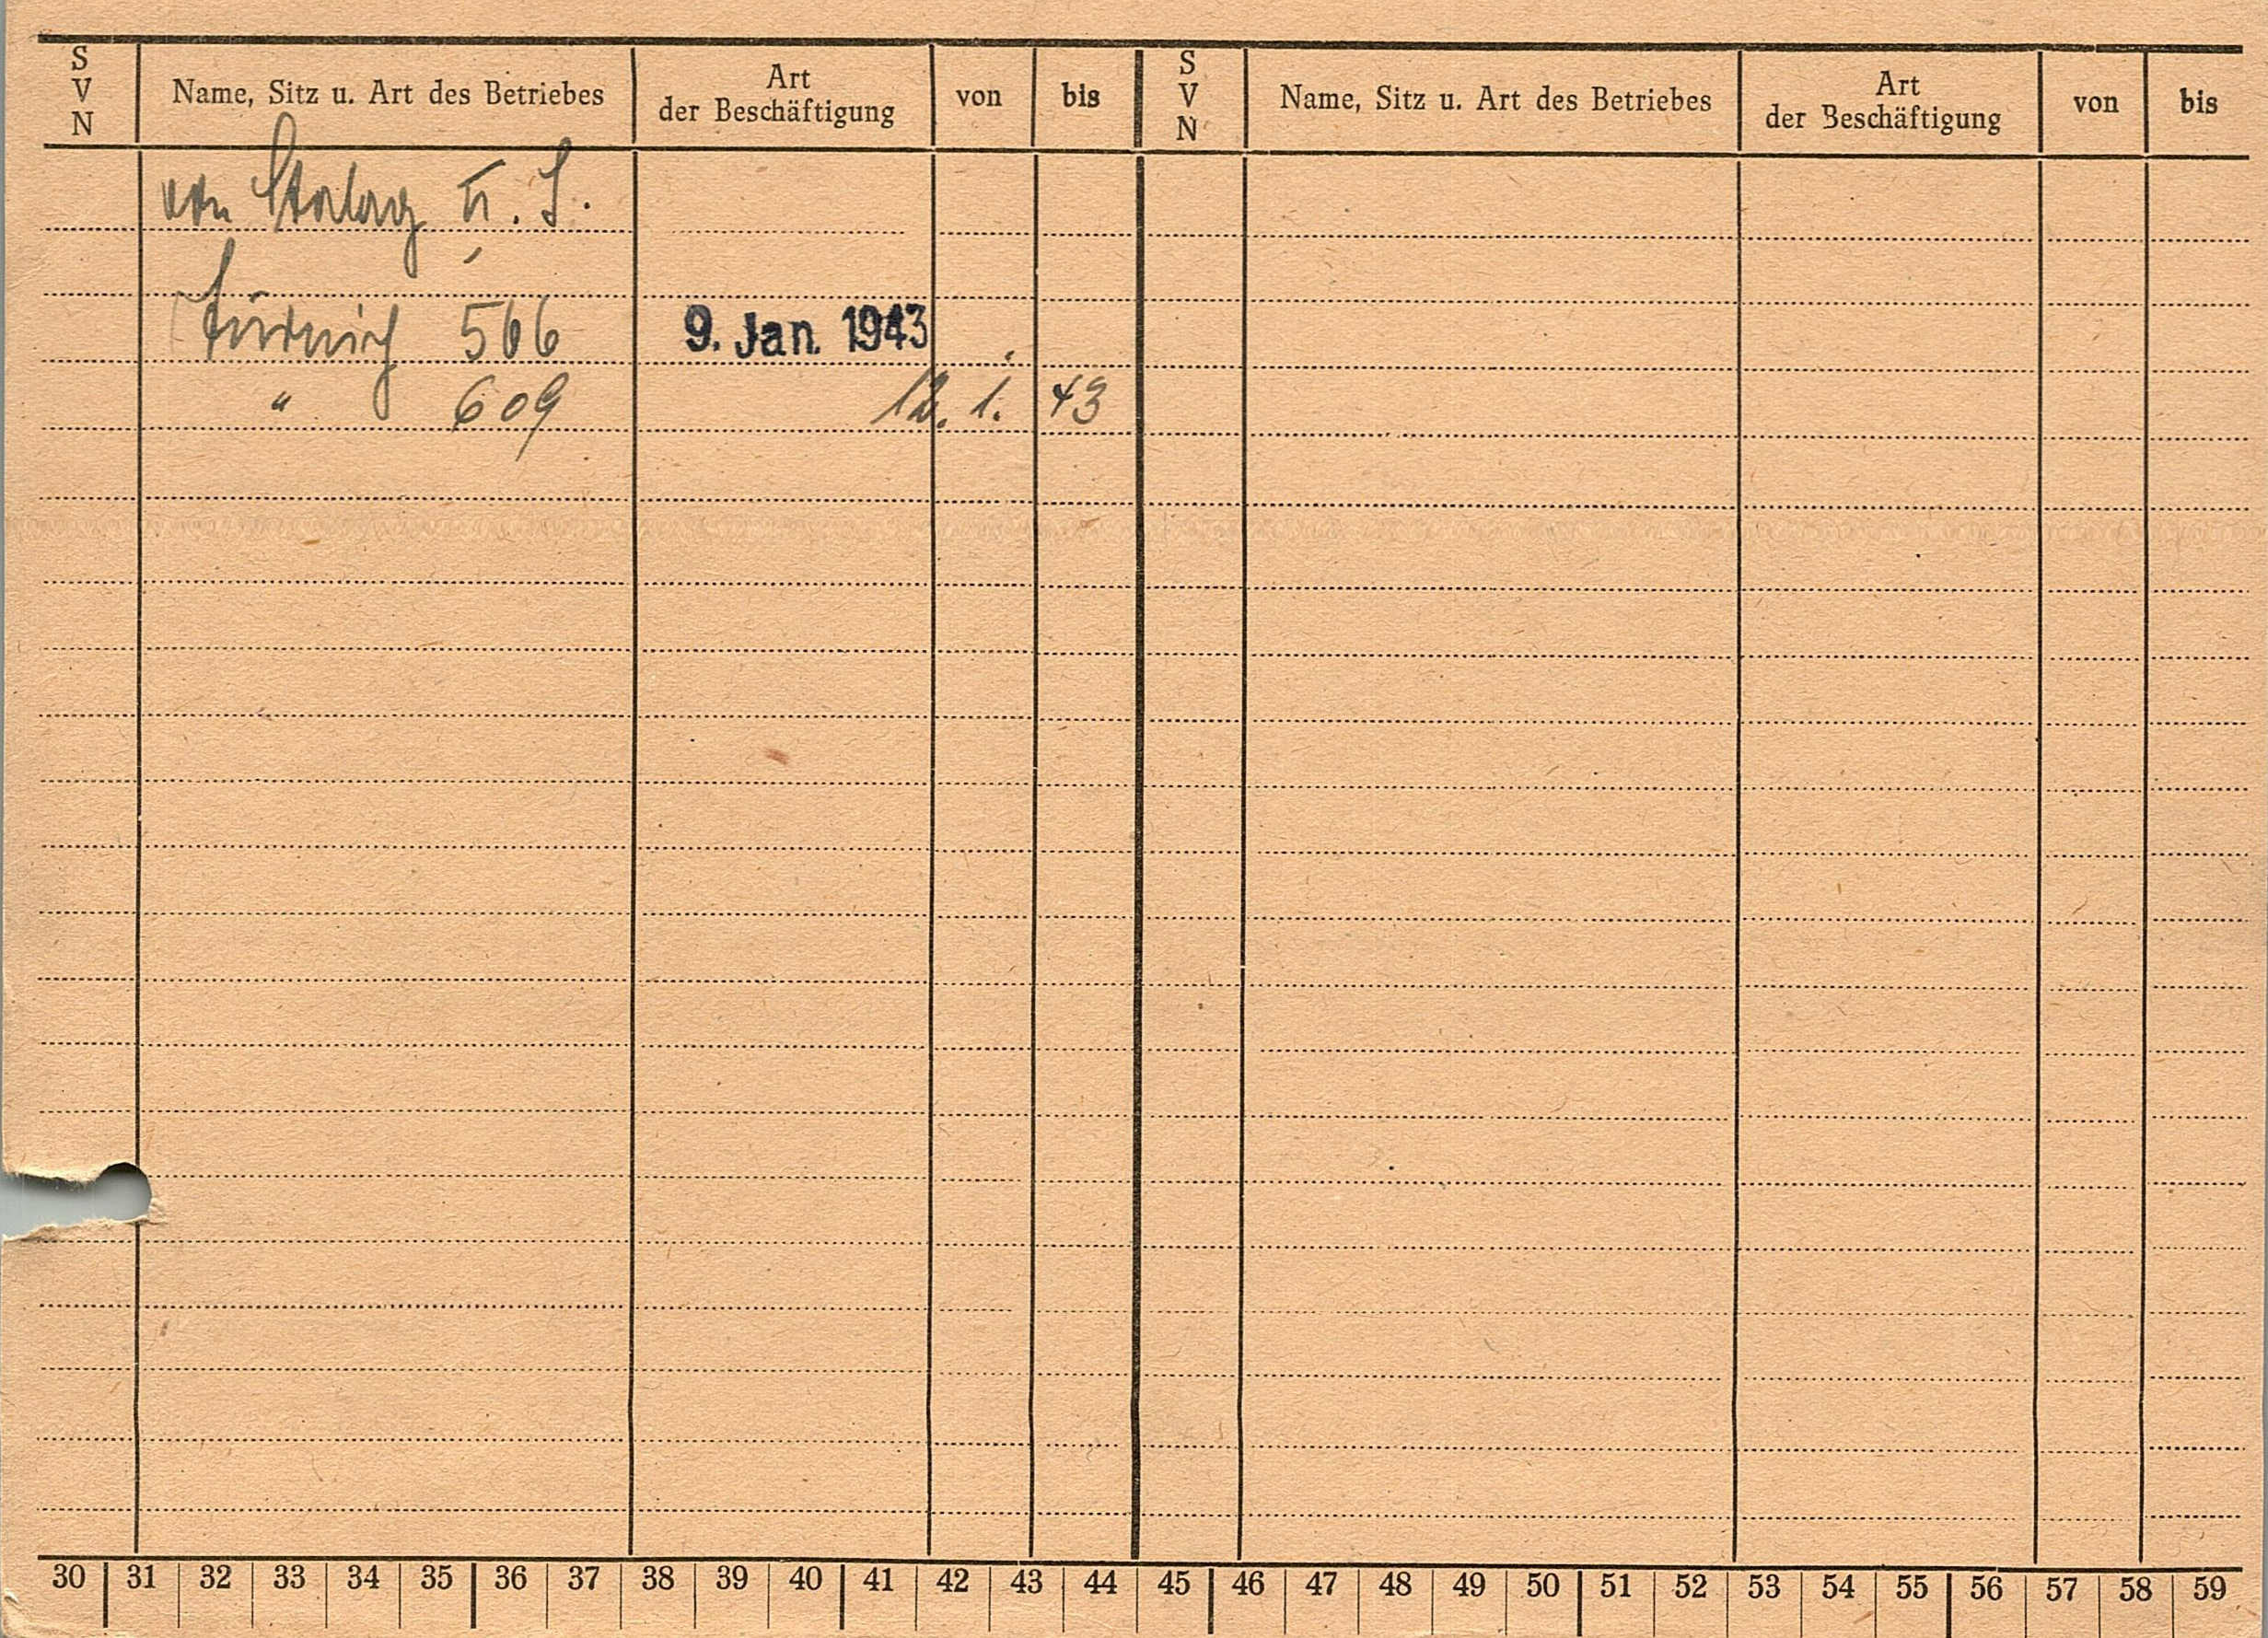 S V N Name, Sitz u. Art des Betriebes Art der Beschäftigung von bis S V N Name, Sitz u. Art des Betriebes Art der Beschäftigung von bis
von Stalag VI. J.
Türnich 566 9. Jan. 1943
" 609 12. 1. 43
30 31 32 33 34 35 36 37 38 39 40 41 42 43 44 45 46 47 48 49 50 51 52 53 54 55 56 57 58 59